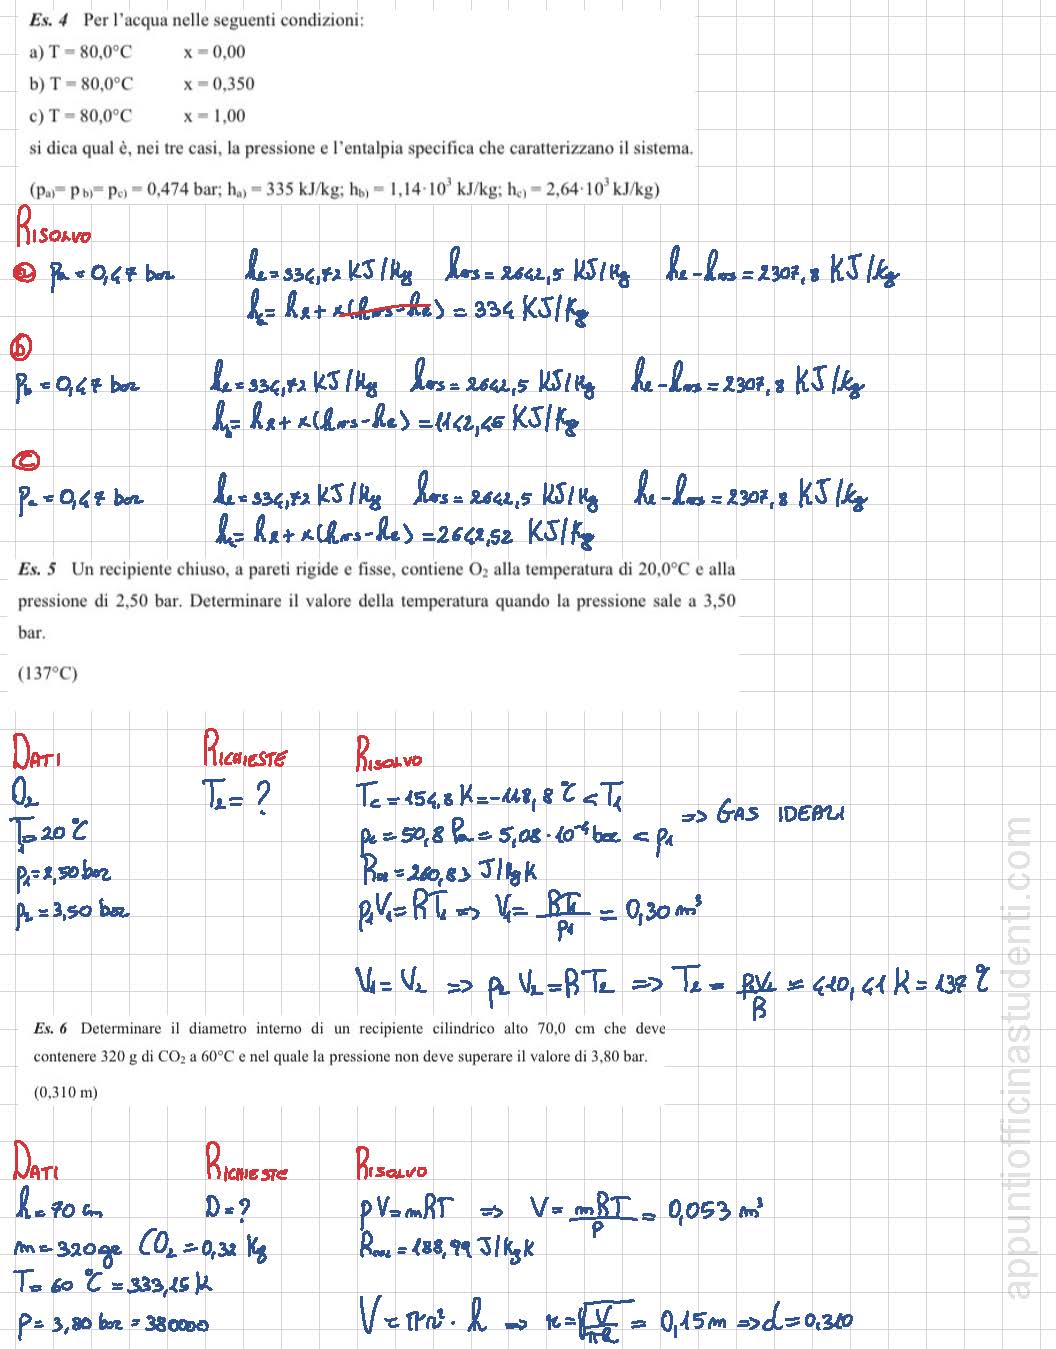 Es. 4 Per l'acqua nelle seguenti condizioni:
a) T = 80,0°C x = 0,00
b) T = 80,0°C x = 0,350
c) T = 80,0°C x = 1,00
si dica qual è, nei tre casi, la pressione e l'entalpia specifica che caratterizzano il sistema.
(pa)= p b)= pc) = 0,474 bar; ha) = 335 kJ/kg; hb) = 1,14·10³ kJ/kg; hc) = 2,64·10³ kJ/kg)
RISOLVO
a pa = 0,47 bar hl = 334,72 KJ/Kg hvs = 2642,5 KJ/Kg hl - hvs = 2307,8 KJ/kg
h = hl + x(hvs-hl) = 334 KJ/Kg
b
pb = 0,47 bar hl = 334,72 KJ/Kg hvs = 2642,5 KJ/Kg hl - hvs = 2307,8 KJ/kg
h = hl + x(hvs-hl) = 1142,45 KJ/Kg
c
pc = 0,47 bar hl = 334,72 KJ/Kg hvs = 2642,5 KJ/Kg hl - hvs = 2307,8 KJ/kg
h = hl + x(hvs-hl) = 2642,52 KJ/Kg
Es. 5 Un recipiente chiuso, a pareti rigide e fisse, contiene O₂ alla temperatura di 20,0°C e alla
pressione di 2,50 bar. Determinare il valore della temperatura quando la pressione sale a 3,50
bar.
(137°C)
DATI RICHIESTE RISOLVO
O₂ T₂ = ? Tc = 154,8 K = -118,8 °C < T₁
T₁ = 20 °C pc = 50,8 Pa = 5,08·10⁻⁴ bar < p₁ => GAS IDEALI
p₁ = 2,50 bar R = 260,83 J/KgK
p₂ = 3,50 bar p₁V₁ = RT₁ => V₁ = RT₁/p₁ = 0,30 m³
V₁ = V₂ => p₂ V₂ = RT₂ => T₂ = PV₂/R = 410,41 K = 137 °C
Es. 6 Determinare il diametro interno di un recipiente cilindrico alto 70,0 cm che deve
contenere 320 g di CO₂ a 60°C e nel quale la pressione non deve superare il valore di 3,80 bar.
(0,310 m)
DATI RICHIESTE RISOLVO
h = 70 cm D = ? pV = mRT => V = mRT/P = 0,053 m³
m = 320 gr CO₂ = 0,32 Kg R = 188,99 J/KgK
T = 60 °C = 333,15 K
P = 3,80 bar = 380000 V = πr²·h => r = √V/πh = 0,15 m => d = 0,310
appuntiofficinastudenti.com